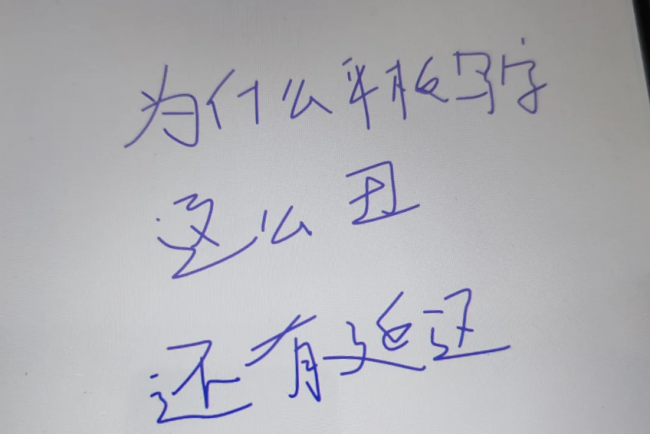 为什么平板写字
这么丑
还有延迟